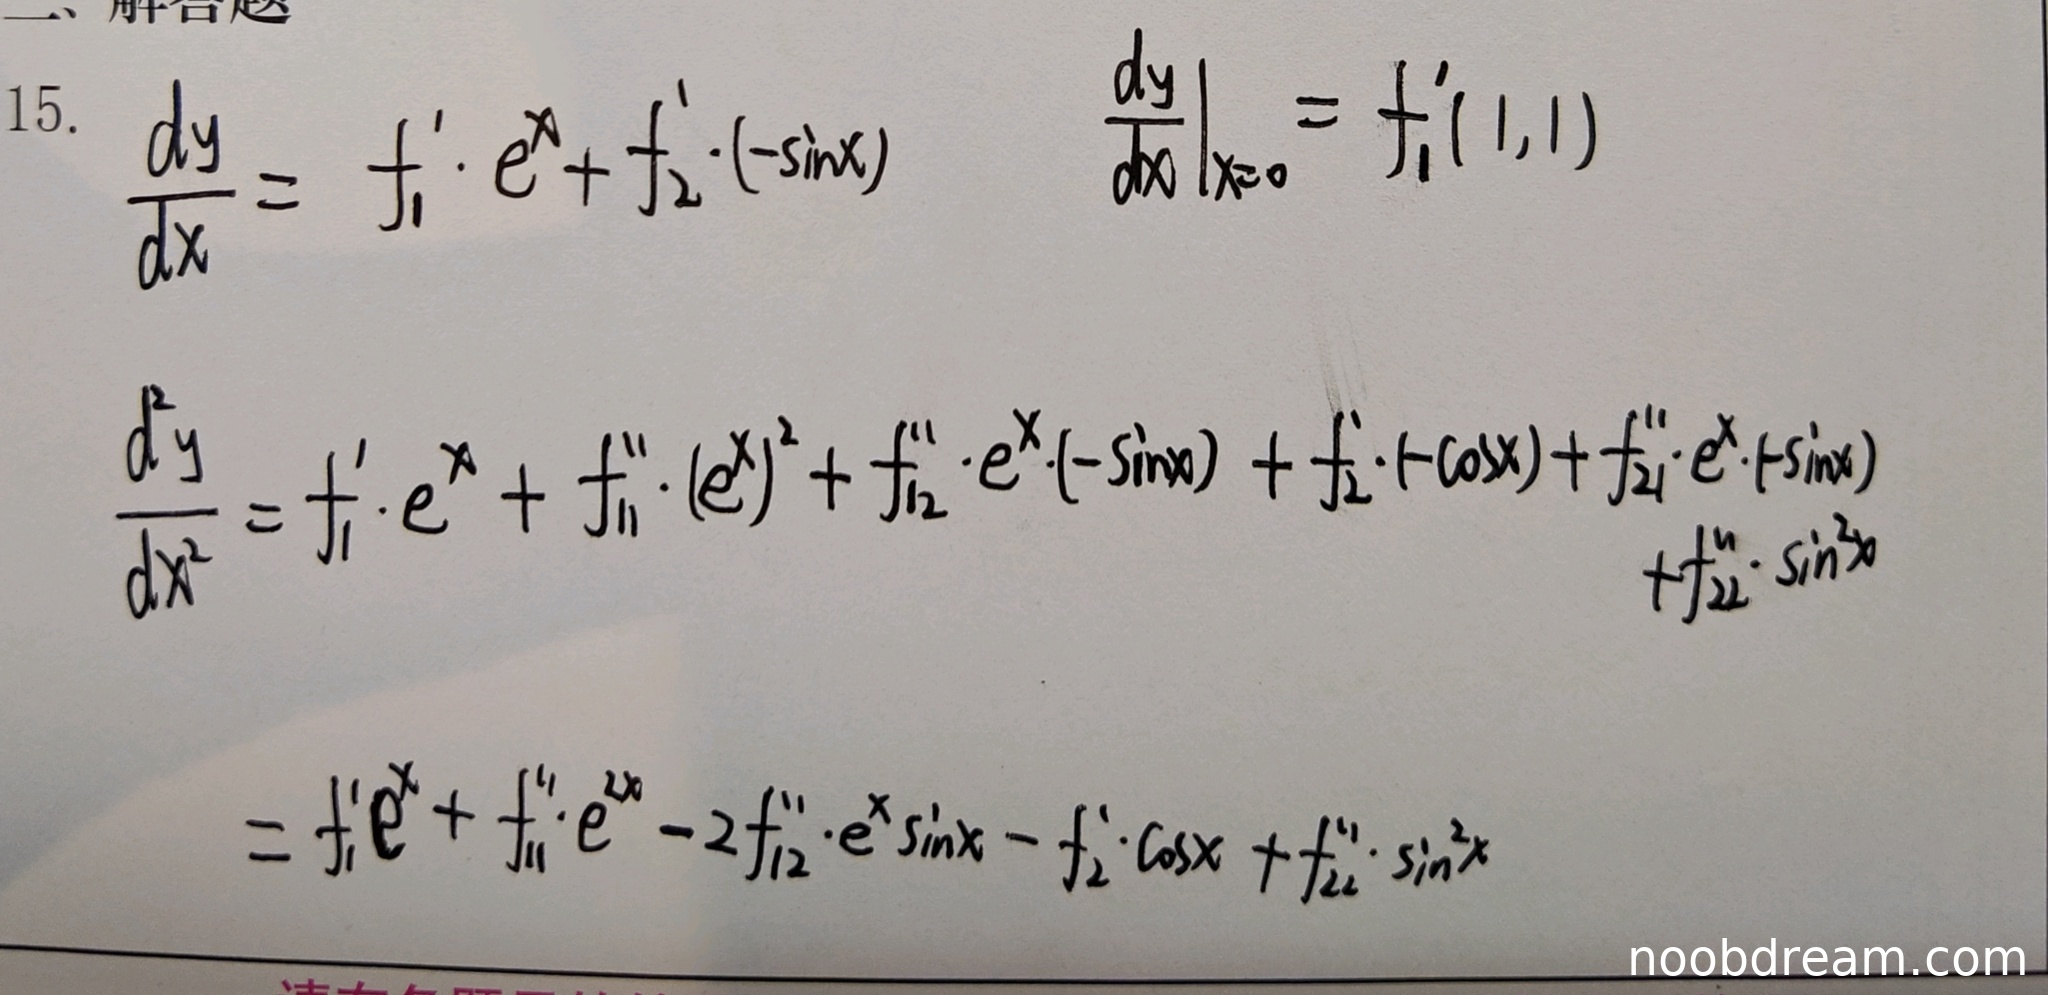 二、解答题
15. dy/dx = f₁′ · eˣ + f₂′ · (−sinx)    dy/dx|ₓ₌₀ = f₁′(1,1)
d²y/dx² = f₁′ · eˣ + f₁₁″ · (eˣ)² + f₁₂″ · eˣ · (−sinx) + f₂′ · (−cosx) + f₂₁″ · eˣ · (−sinx)
+ f₂₂″ · sin²x
= f₁′eˣ + f₁₁″ · e²ˣ − 2f₁₂″ · eˣ sinx − f₂′ · cosx + f₂₂″ · sin²x
noobdream.com